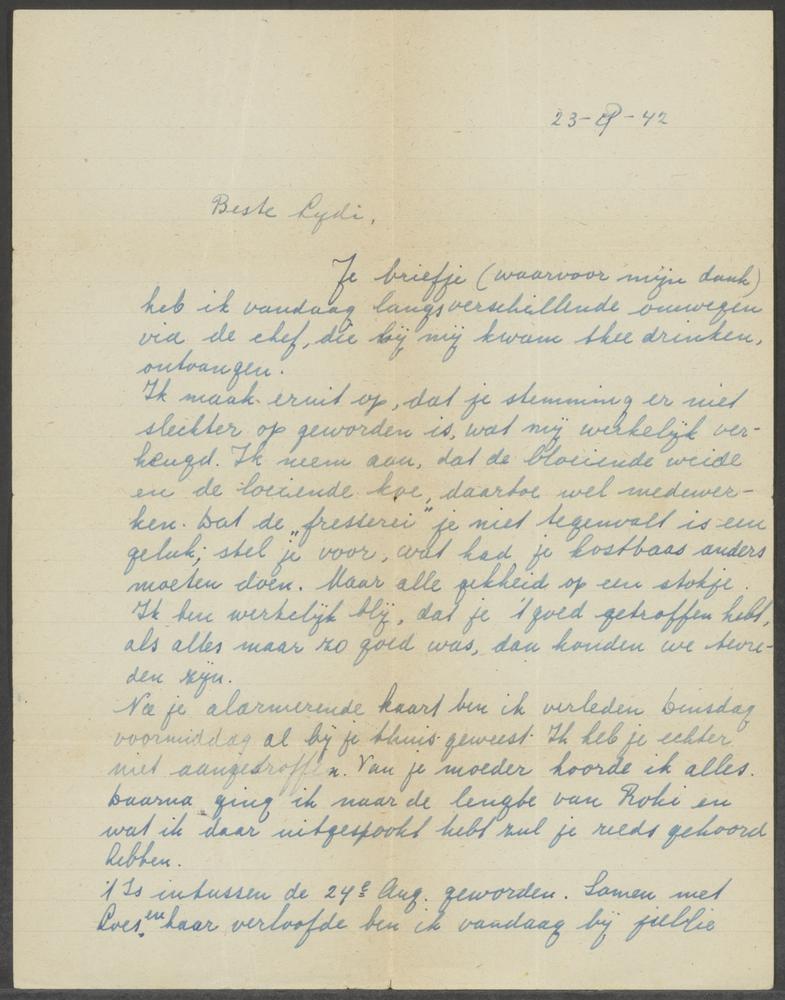 23- -42
Beste Lydi,
Je briefje (waarvoor mijn dank)
heb ik vandaag langs verschillende omwegen
via de chef, die bij mij kwam thee drinken,
ontvangen.
Ik maak eruit op, dat je stemming er niet
slechter op geworden is, wat mij werkelijk ver-
heugd. Ik neem aan, dat de bloeiende weide
en de loeiende koe, daartoe wel medewer-
ken. Dat de „fresserei" je niet tegenvalt is een
geluk; stel je voor, wat had je kostbaas anders
moeten doen. Maar alle gekheid op een stokje.
Ik ben werkelijk blij, dat je 't goed getroffen hebt,
als alles maar zo goed was, dan konden we tevre-
den zijn.
Na je alarmerende kaart ben ik verleden Dinsdag
voormiddag al bij je thuis geweest. Ik heb je echter
niet aangetroffen. Van je moeder hoorde ik alles.
Daarna ging ik naar de lengte van Roki en
wat ik daar uitgespookt hebt zul je reeds gehoord
hebben.
't Is intussen de 24e Aug. geworden. Samen met
Loes en haar verloofde ben ik vandaag bij jullie